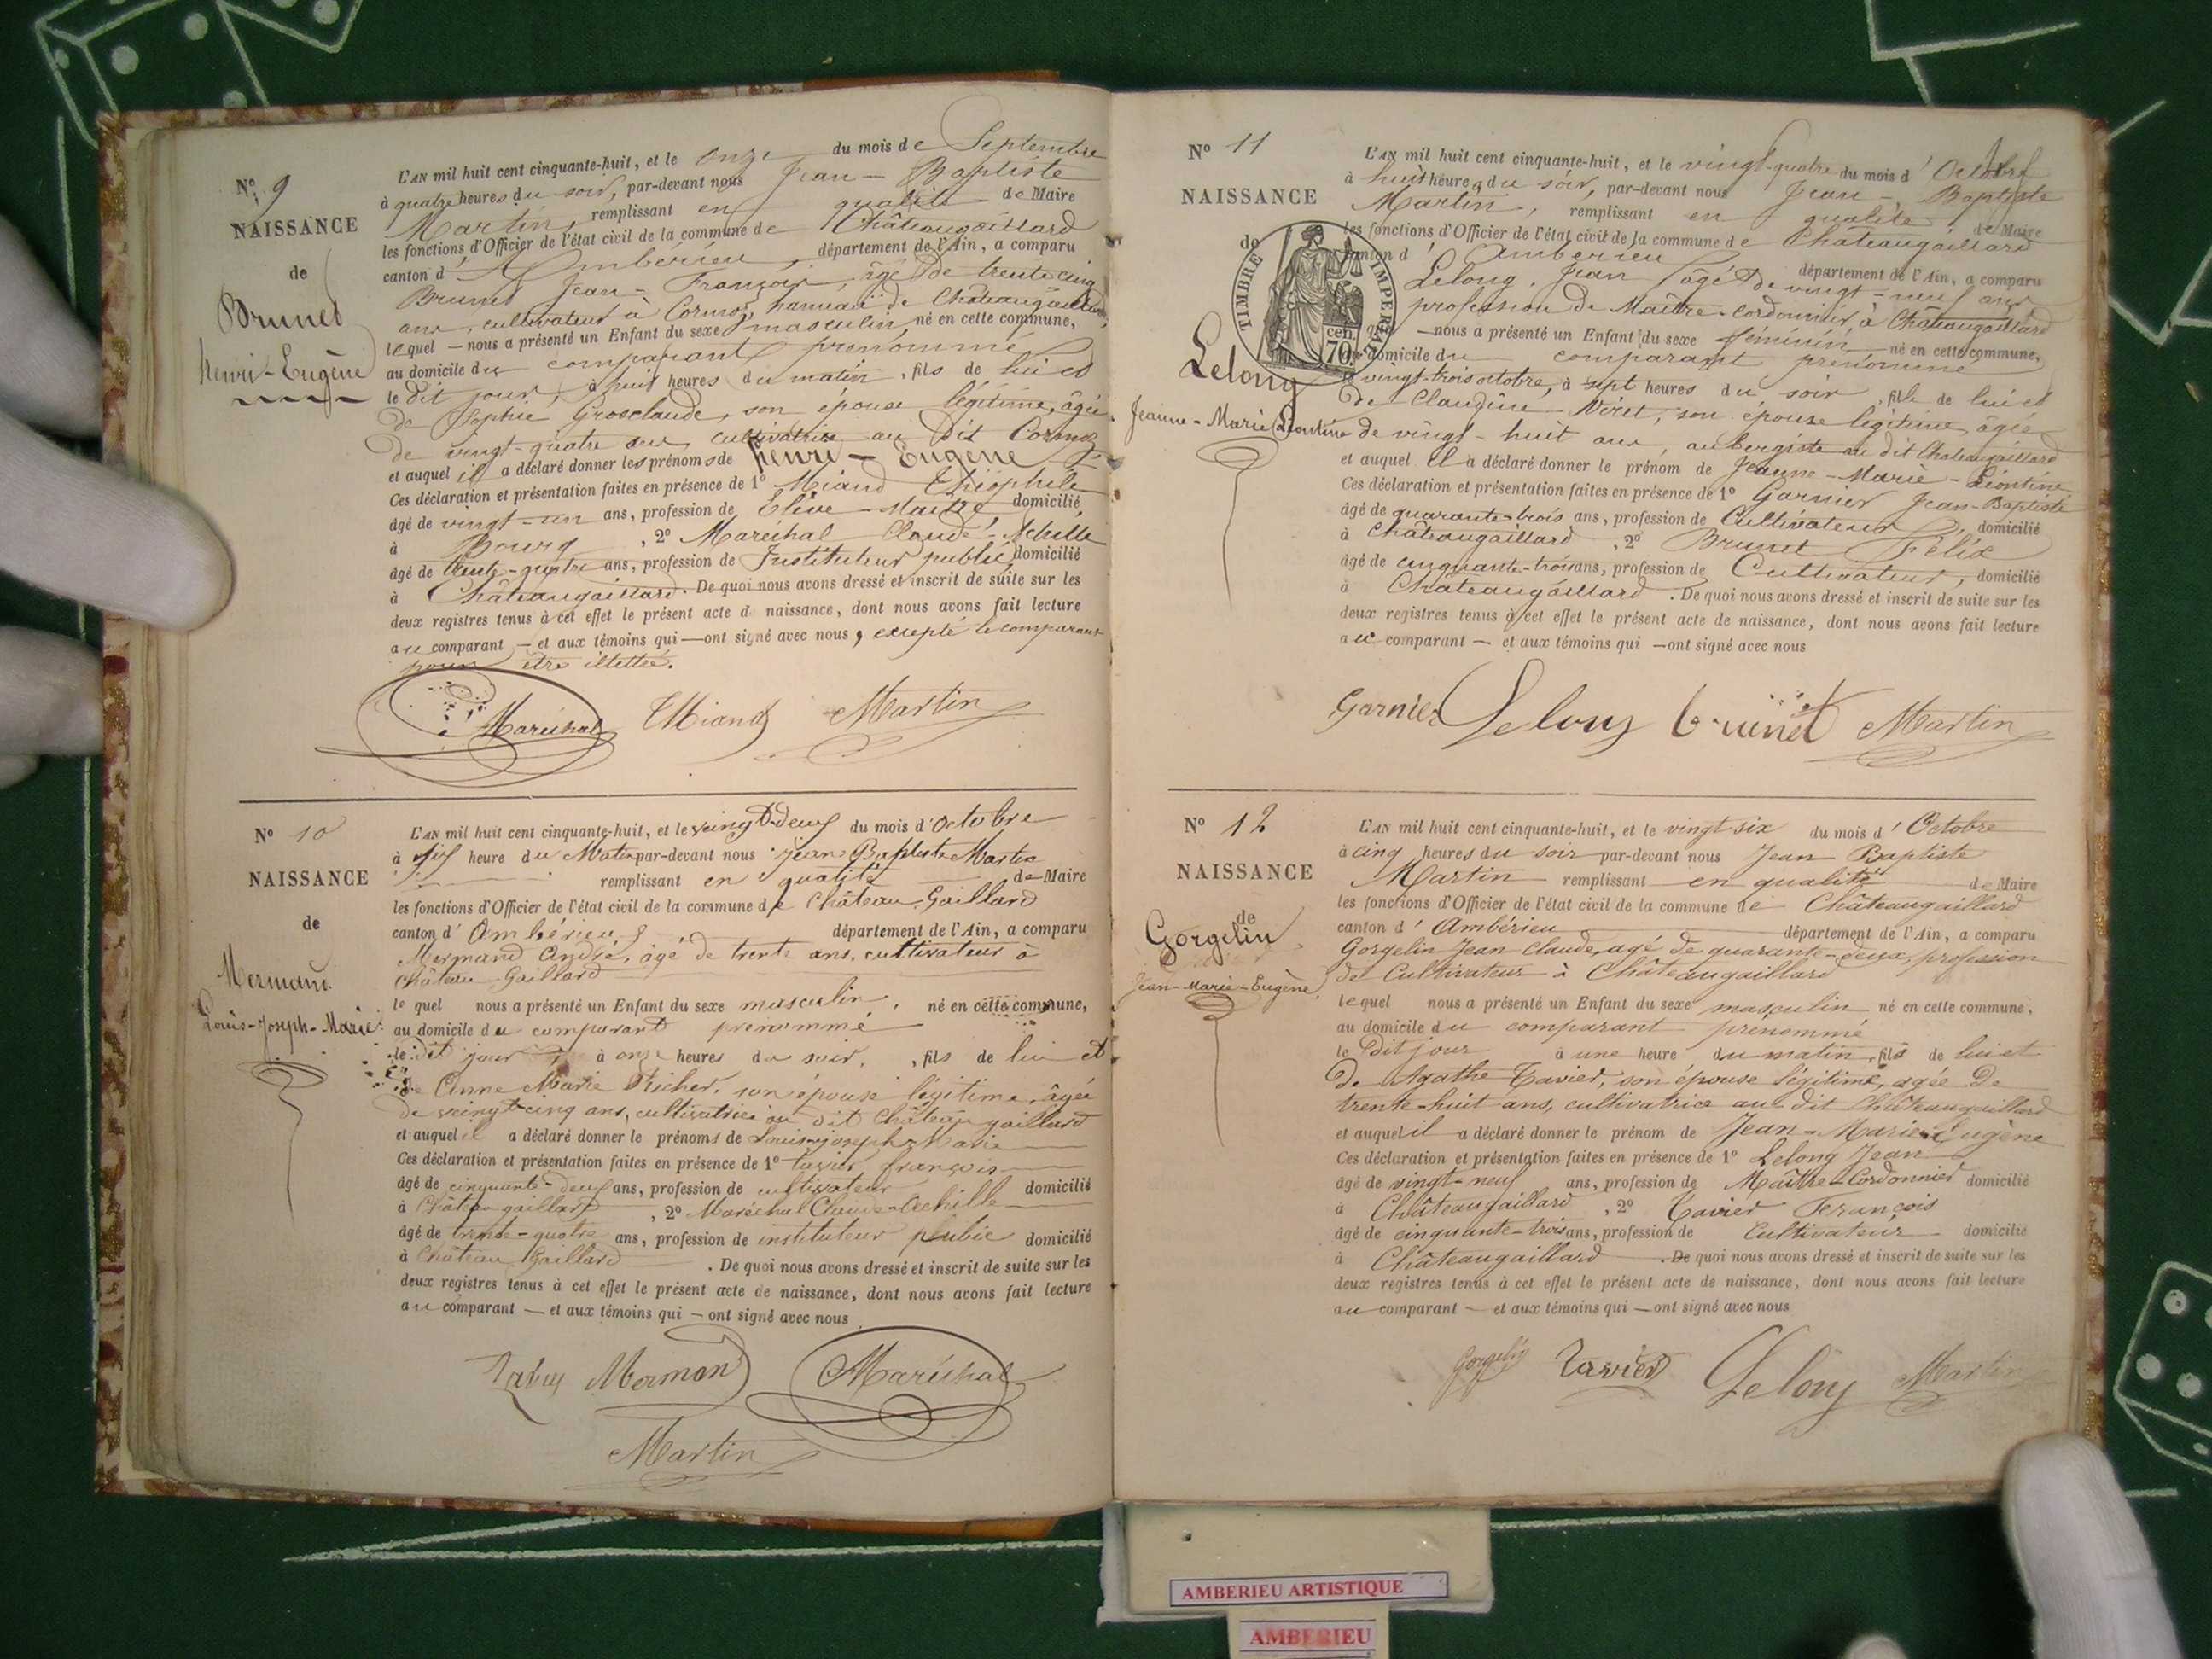 Nº 9
NAISSANCE
de
Brunet
henri-Eugène
L'AN mil huit cent cinquante-huit, et le onze du mois de Septembre
à quatre heures du soir, par-devant nous Jean-Baptiste
Martin, remplissant en qualité de Maire
les fonctions d'Officier de l'état civil de la commune de Châteaugaillard
canton d'Ambérieu, département de l'Ain, a comparu
Brunet Jean-François, âgé de trente cinq
ans, cultivateur à Cormoz, hameau de Châteaugaillard,
lequel — nous a présenté un Enfant du sexe masculin né en cette commune,
au domicile du comparant prénommé
le dit jour, à huit heures du matin, fils de lui et
de Sophie Grosclaude, son épouse légitime, âgée
de vingt-quatre ans cultivatrice au dit Cormoz
et auquel il a déclaré donner les prénoms de henri-Eugène
Ces déclaration et présentation faites en présence de 1º Miand Théophile
âgé de vingt-un ans, profession de Elève-Maître domicilié
à Bourg, 2º Maréchal Claude-Achille
âgé de trente-quatre ans, profession de Instituteur public domicilié
à Châteaugaillard. De quoi nous avons dressé et inscrit de suite sur les
deux registres tenus à cet effet le présent acte de naissance, dont nous avons fait lecture
au comparant — et aux témoins qui — ont signé avec nous, excepté le comparant
pour être illettré.
Maréchal Miand Martin
Nº 10
NAISSANCE
de
Mermand
Louis-Joseph-Marie
L'AN mil huit cent cinquante-huit, et le vingt-deux du mois d'Octobre
à heure du Matin par-devant nous Jean Baptiste Martin
remplissant en qualité de Maire
les fonctions d'Officier de l'état civil de la commune de Château Gaillard
canton d'Ambérieu département de l'Ain, a comparu
Mermand André, âgé de trente ans, cultivateur à
Château Gaillard
le quel nous a présenté un Enfant du sexe masculin, né en cette commune,
au domicile du comparant prénommé
le dit jour à onze heures du soir, fils de lui et
de Anne Marie Richer, son épouse légitime, âgée
de vingt-cinq ans, cultivatrice au dit Château gaillard
et auquel il a déclaré donner le prénoms de Louis-joseph-Marie
Ces déclaration et présentation faites en présence de 1º françois
âgé de cinquante-deux ans, profession de cultivateur domicilié
à Château gaillard, 2º Maréchal Claude-Achille
âgé de trente-quatre ans, profession de instituteur public domicilié
à Château Gaillard. De quoi nous avons dressé et inscrit de suite sur les
deux registres tenus à cet effet le présent acte de naissance, dont nous avons fait lecture
au comparant — et aux témoins qui — ont signé avec nous
Mermand Maréchal
Martin
Nº 11
NAISSANCE
de
TIMBRE IMPERIAL
70 cen
Lelong
Jeanne-Marie Léontine
L'AN mil huit cent cinquante-huit, et le vingt-quatre du mois d'Octobre
à huit heures du soir, par-devant nous Jean-Baptiste
Martin, remplissant en qualité de Maire
les fonctions d'Officier de l'état civil de la commune de Châteaugaillard
canton d'Amberieu département de l'Ain, a comparu
Lelong, Jean âgé de vingt-neuf ans
profession de Maître-cordonnier, à Châteaugaillard
— nous a présenté un Enfant du sexe féminin né en cette commune,
domicile du comparant prénommé
le vingt-trois octobre, à sept heures du soir, fille de lui et
de Claudine Néret, son épouse légitime, âgée
de vingt-huit ans, aubergiste au dit Chateaugaillard
et auquel il a déclaré donner le prénom de Jeanne-Marie-Léontine
Ces déclaration et présentation faites en présence de 1º Garnier Jean-Baptiste
âgé de quarante-trois ans, profession de Cultivateur, domicilié
à Châteaugaillard, 2º Brunet Félix
âgé de cinquante-trois ans, profession de Cultivateur, domicilié
à Châteaugaillard. De quoi nous avons dressé et inscrit de suite sur les
deux registres tenus à cet effet le présent acte de naissance, dont nous avons fait lecture
au comparant — et aux témoins qui — ont signé avec nous
Garnier Lelong brunet Martin
Nº 12
NAISSANCE
de
Gorgelin
Jean-Marie-Eugène
L'AN mil huit cent cinquante-huit, et le vingt six du mois d'Octobre
à cinq heures du soir par-devant nous Jean Baptiste
Martin remplissant en qualité de Maire
les fonctions d'Officier de l'état civil de la commune de Châteaugaillard
canton d'Ambérieu département de l'Ain, a comparu
Gorgelin Jean Claude, agé de quarante-deux, profession
de Cultivateur à Châteaugaillard
lequel nous a présenté un Enfant du sexe masculin né en cette commune,
au domicile du comparant prénommé
le dit jour à une heure du matin, fils de lui et
de Agathe Tavier, son épouse légitime, agée de
trente-huit ans, cultivatrice au dit Châteaugaillard
et auquel il a déclaré donner le prénom de Jean-Marie-Eugène
Ces déclaration et présentation faites en présence de 1º Lelong Jean
âgé de vingt-neuf ans, profession de Maître-Cordonnier domicilié
à Châteaugaillard, 2º Tavier François
âgé de cinquante-trois ans, profession de Cultivateur domicilié
à Châteaugaillard. De quoi nous avons dressé et inscrit de suite sur les
deux registres tenus à cet effet le présent acte de naissance, dont nous avons fait lecture
au comparant — et aux témoins qui — ont signé avec nous
Gorgelin Tavier Lelong Martin
AMBERIEU ARTISTIQUE
AMBERIEU